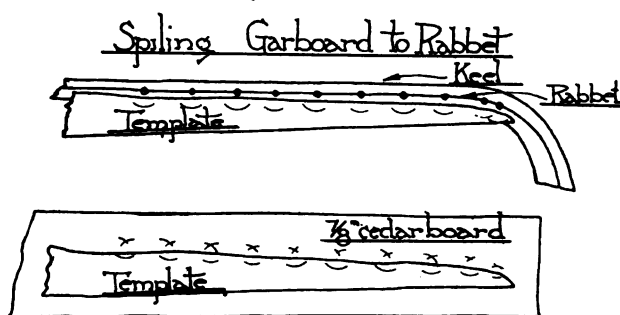 Spiling Garboard to Rabbet
Keel
Rabbet
Template
7/8" cedarboard
Template